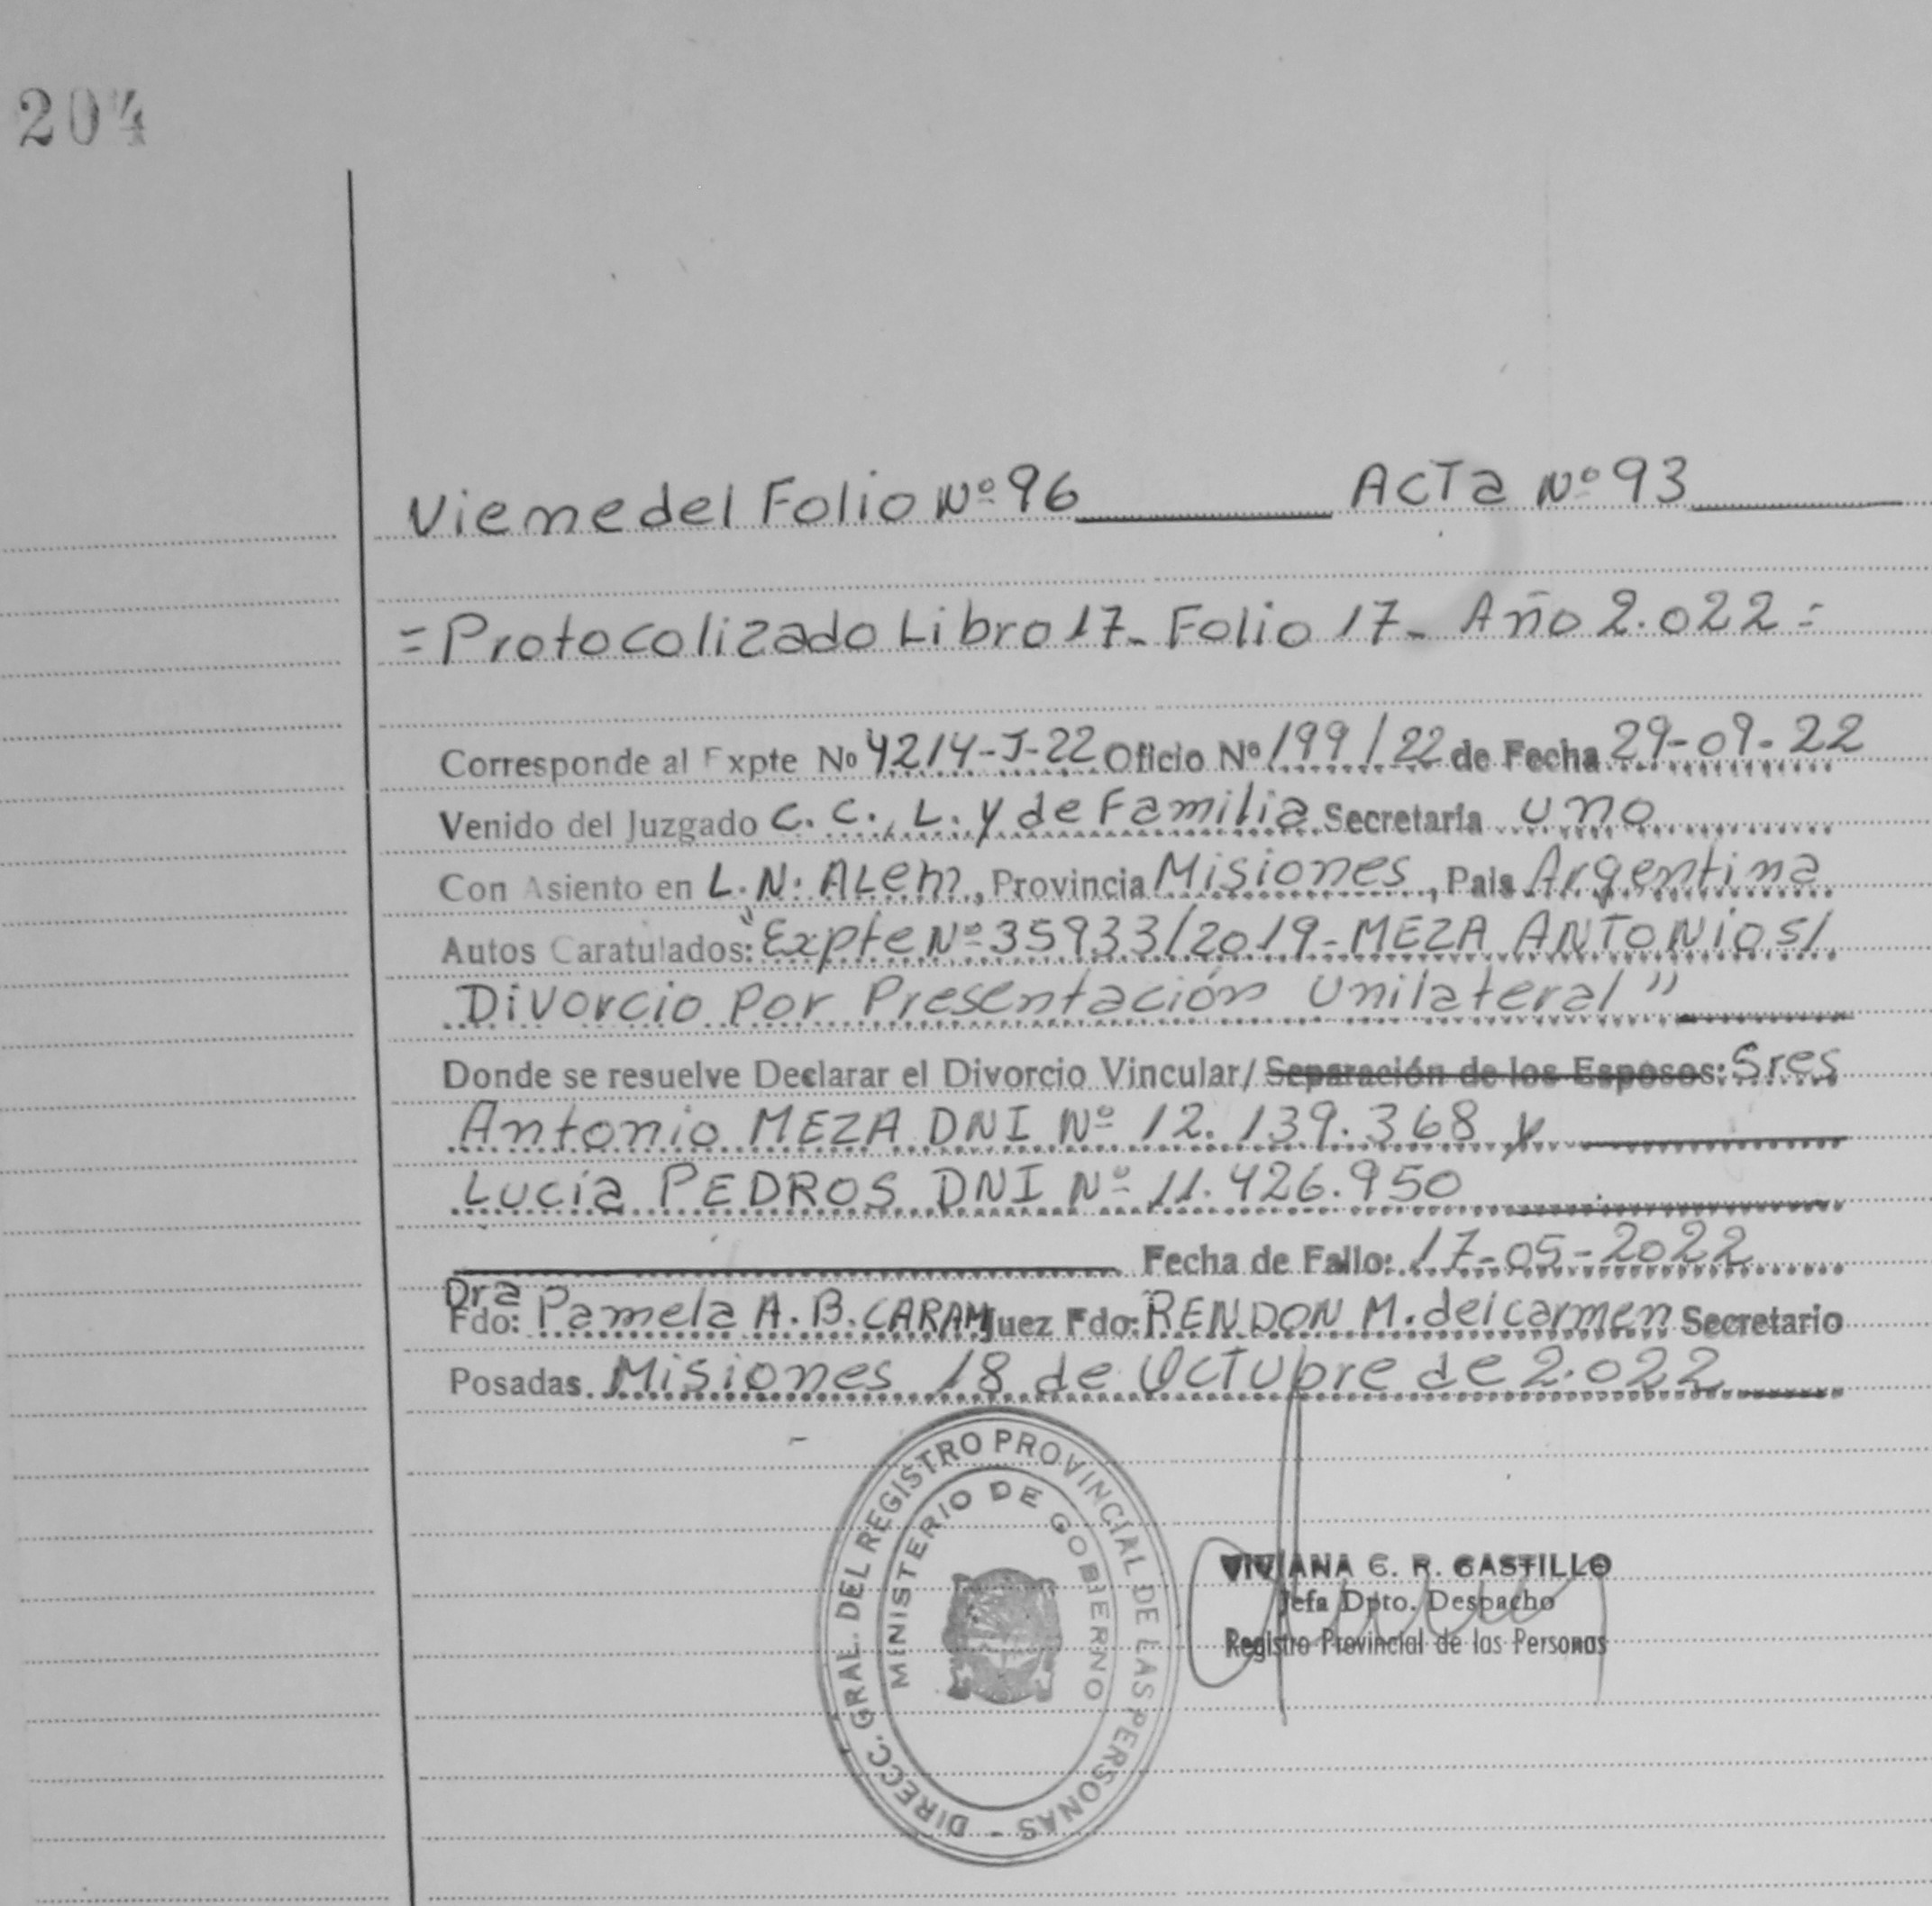 204
Viene del Folio Nº 96 Acta Nº 93
= Protocolizado Libro 17- Folio 17- Año 2.022 =
Corresponde al Expte Nº 4214-J-22 Oficio Nº 199/22 de Fecha 29-09-22
Venido del Juzgado C. C., L. y de Familia Secretaria uno
Con Asiento en L. N. ALem, Provincia Misiones, Pais Argentina
Autos Caratulados: "Expte Nº 35933/2019-MEZA ANTONIO s/
Divorcio por Presentación Unilateral"
Donde se resuelve Declarar el Divorcio Vincular/ Separación de los Esposos: Sres
Antonio MEZA DNI Nº 12.139.368 y
Lucía PEDROS DNI Nº 11.426.950
Fecha de Fallo: 17-05-2022
Dra
Fdo: Pamela A. B. CARAM Juez Fdo: RENDON M. del carmen Secretario
Posadas Misiones 18 de Octubre de 2.022
DIRECC. GRAL. DEL REGISTRO PROVINCIAL DE LAS PERSONAS -
MINISTERIO DE GOBIERNO
VIVIANA C. R. CASTILLO
Jefa Dpto. Despacho
Registro Provincial de las Personas